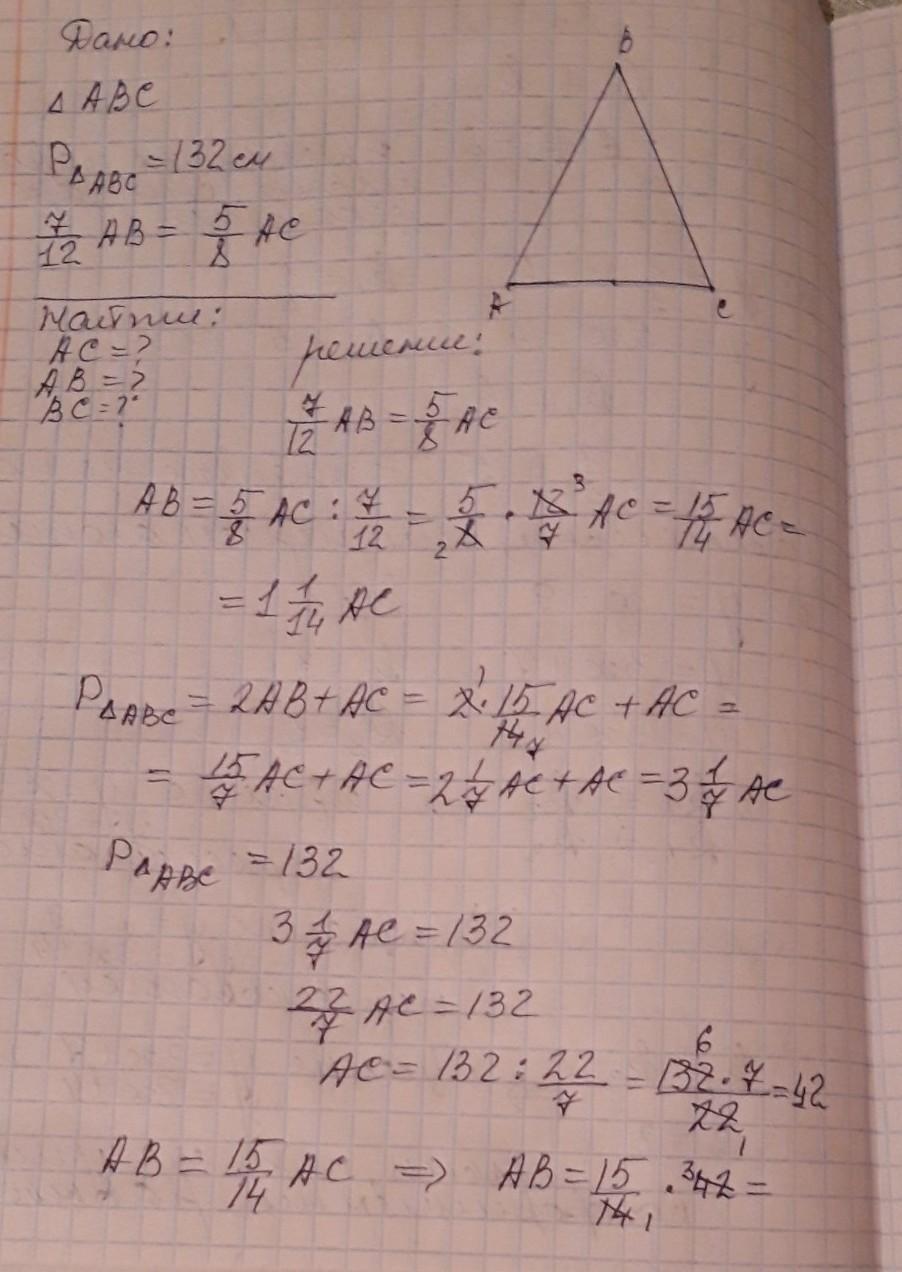 Дано:
△ ABC
P△ABC = 132 см
7/12 AB = 5/8 AC
B
A
C
Найти:
AC = ?
AB = ?
BC = ?
решение:
7/12 AB = 5/8 AC
AB = 5/8 AC : 7/12 = 5/8 2 · 12 3/7 AC = 15/14 AC =
= 1 1/14 AC
P△ABC = 2AB + AC = 2 1 · 15/14 7 AC + AC =
= 15/7 AC + AC = 2 1/7 AC + AC = 3 1/7 AC
P△ABC = 132
3 1/7 AC = 132
22/7 AC = 132
AC = 132 : 22/7 = 132 6 · 7/22 1 = 42
AB = 15/14 AC => AB = 15/14 1 · 3 42 =